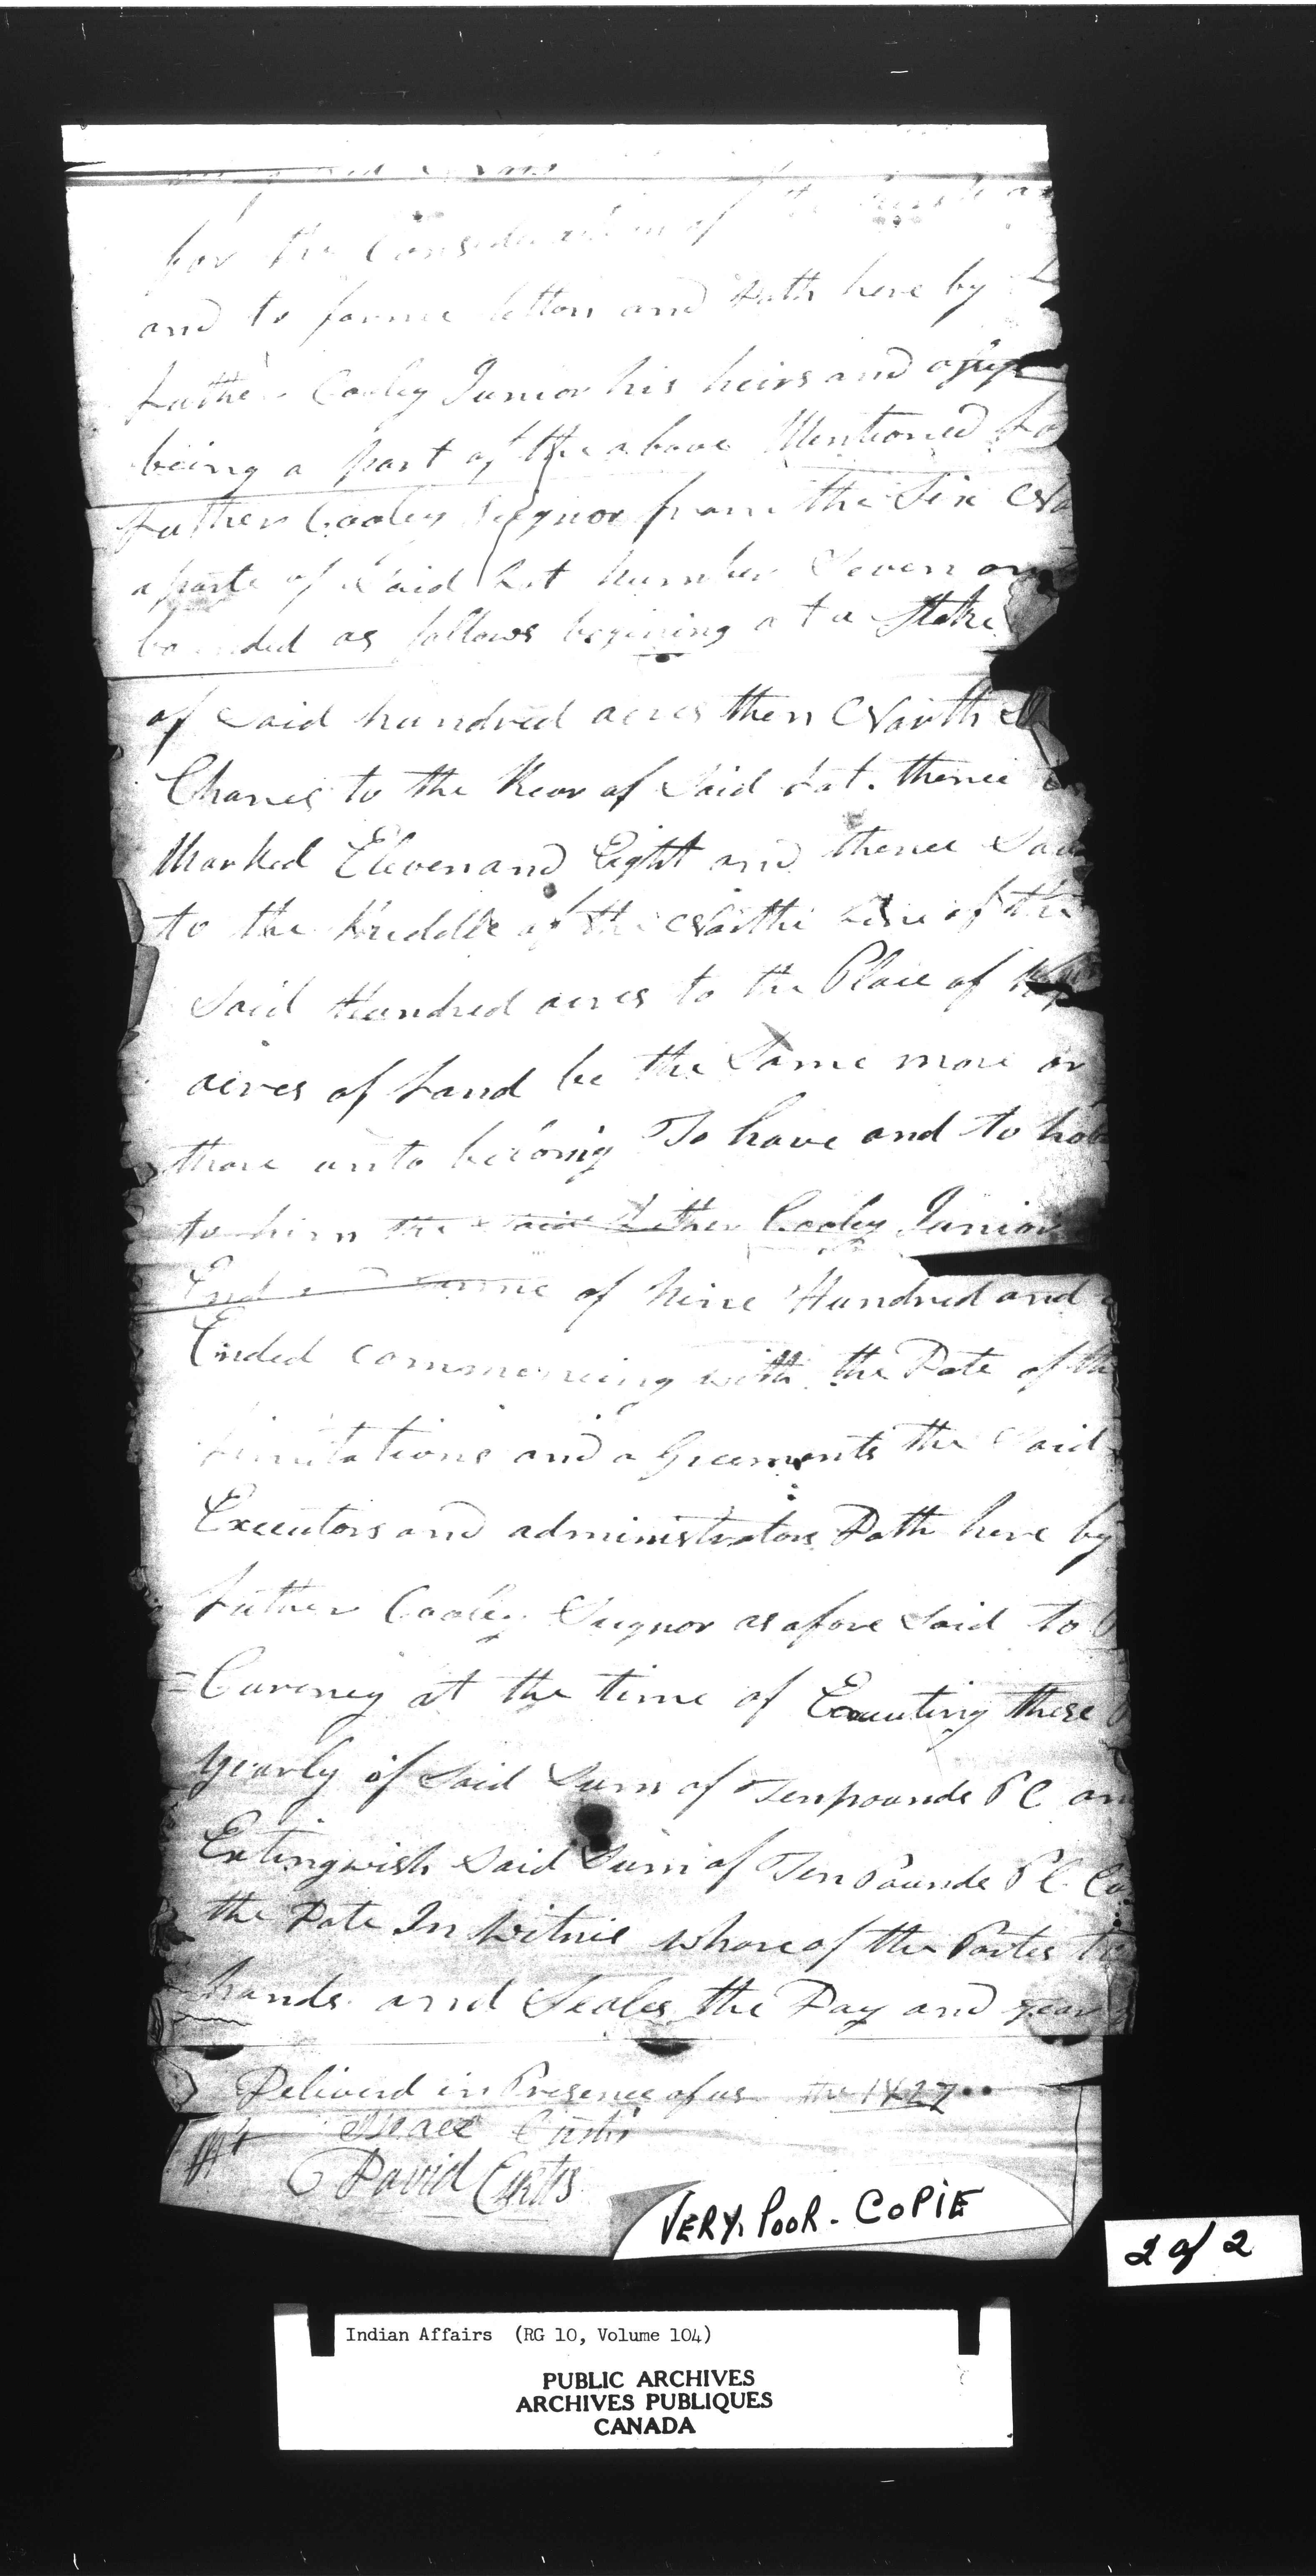 for the Consideration of the
and to farme letton and Doth here by
Luther Cooley Junior his heirs and
being a part of the above Mentioned
Luther Cooley Seignor from the Six
a parte of Said Lot number Seven
bounded as follows begining at a Stake
of Said hundred acres then North
Chanes to the Rear of Said Lot. thence
Marked Eleven and Eight and thence
to the Middle of the Northe Line of the
Said Hundred acres to the Place of
acres of Land be the Same more or
thare unto belonig To have and to
to him the Said Luther Cooley Junior
of Nine Hundred and
Ended commencing with the Date of
Limitations and agreements the Said
Executors and administrators Doth here by
Luther Cooley Seignor as afore Said to
=Cureney at the time of Executing these
yearly of Said Sum of Ten pounds P C
Extingwish Said Sum of Ten Pounds P C.
the Date In witnis whareof the Partes
hands and Seales the Day and year
Deliverd in Presence of us the 1827
Isaac Curtis
David Curtis
VERY. POOR - COPIE
2 of 2
Indian Affairs (RG 10, Volume 104)
PUBLIC ARCHIVES
ARCHIVES PUBLIQUES
CANADA